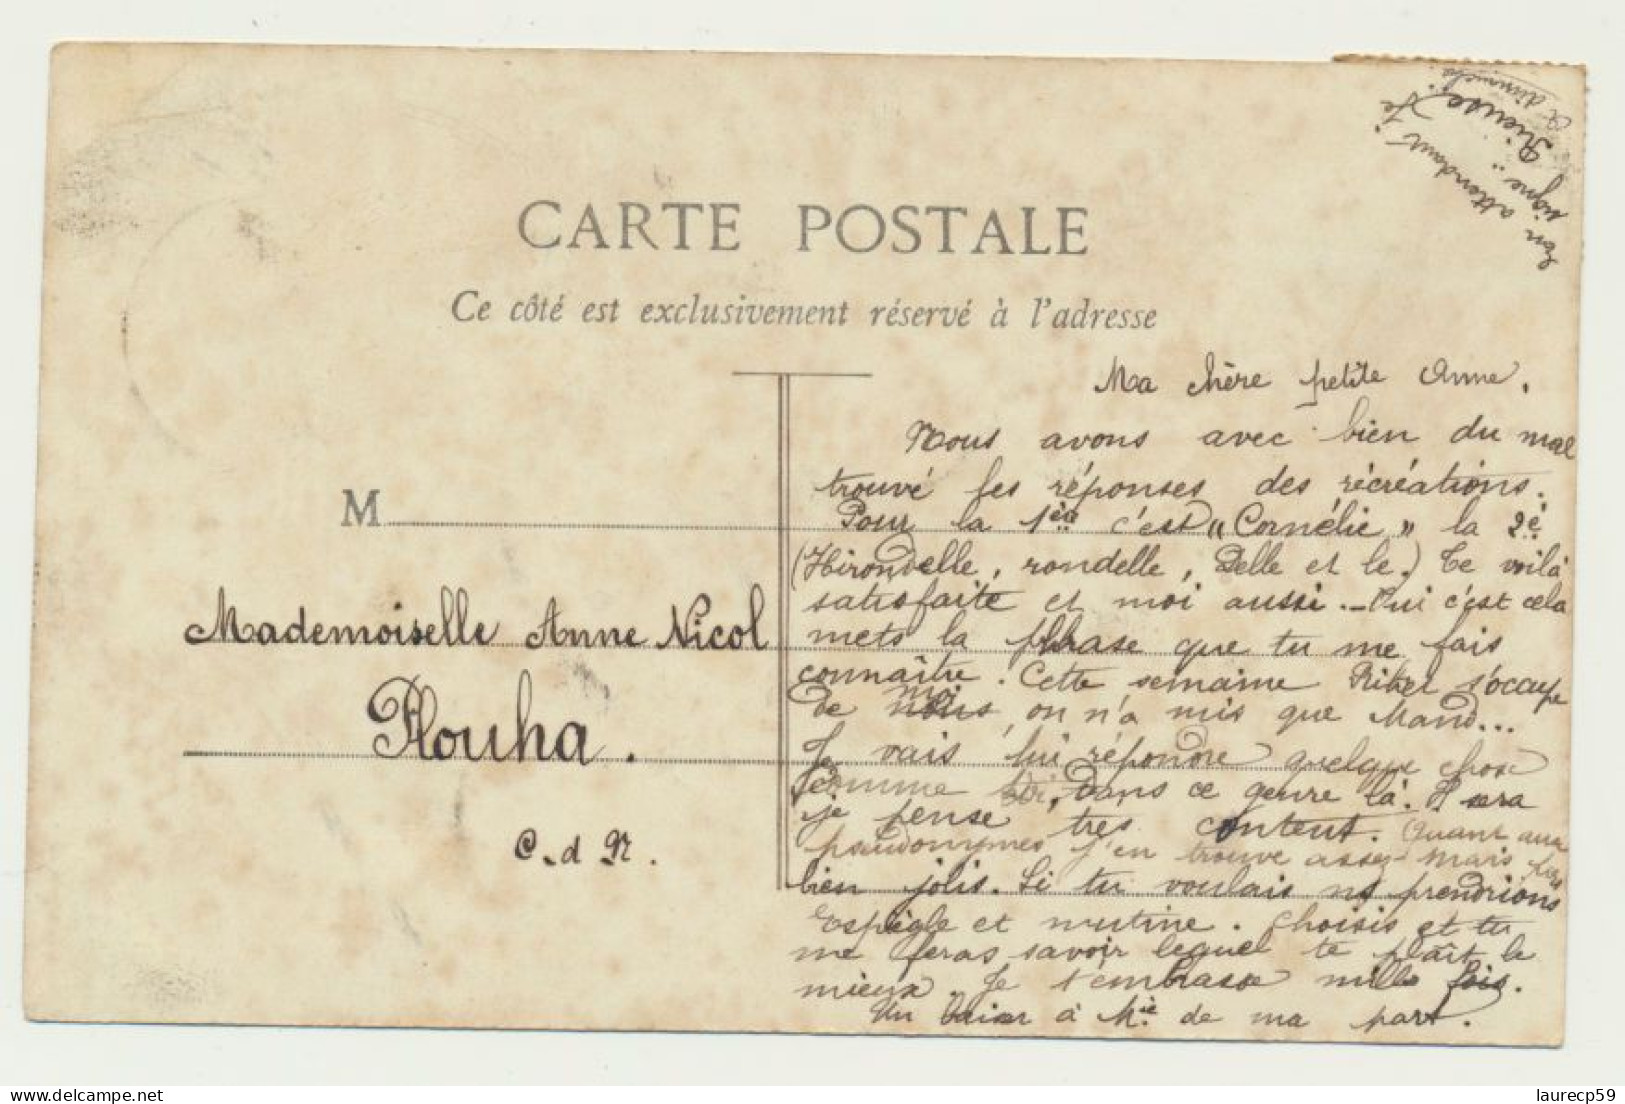 CARTE POSTALE
Ce côté est exclusivement réservé à l'adresse
M
Mademoiselle Anne Nicol
Plouha.
C.d N.
Ma chère petite Anne,
Nous avons avec bien du mal
trouvé les réponses des récréations.
Pour la 1ère c'est "Cornélie" la 2è
(Hirondelle, rondelle, Delle et le.) Te voilà
satisfaite et moi aussi. - Oui c'est cela
mets la phrase que tu me fais
connaître. Cette semaine s'occupe
de moi, on n'a mis que Mand...
Je vais lui répondre quelque chose
comme, dans ce genre là. Il sera
je pense très content. Quant aux
pseudonymes j'en trouve assez mais pas
bien jolis. Si tu voulais ns prendrions
Espiègle et mutine. Choisis et tu
me feras savoir lequel te plaît le
mieux. Je t'embrasse mille fois.
Un baiser à Mie de ma part.
En attendant je
signe "Rieuse"
dimanche
laurecp59